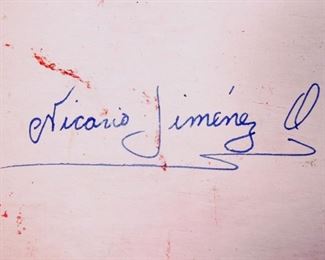 Nicario Jiménez Q